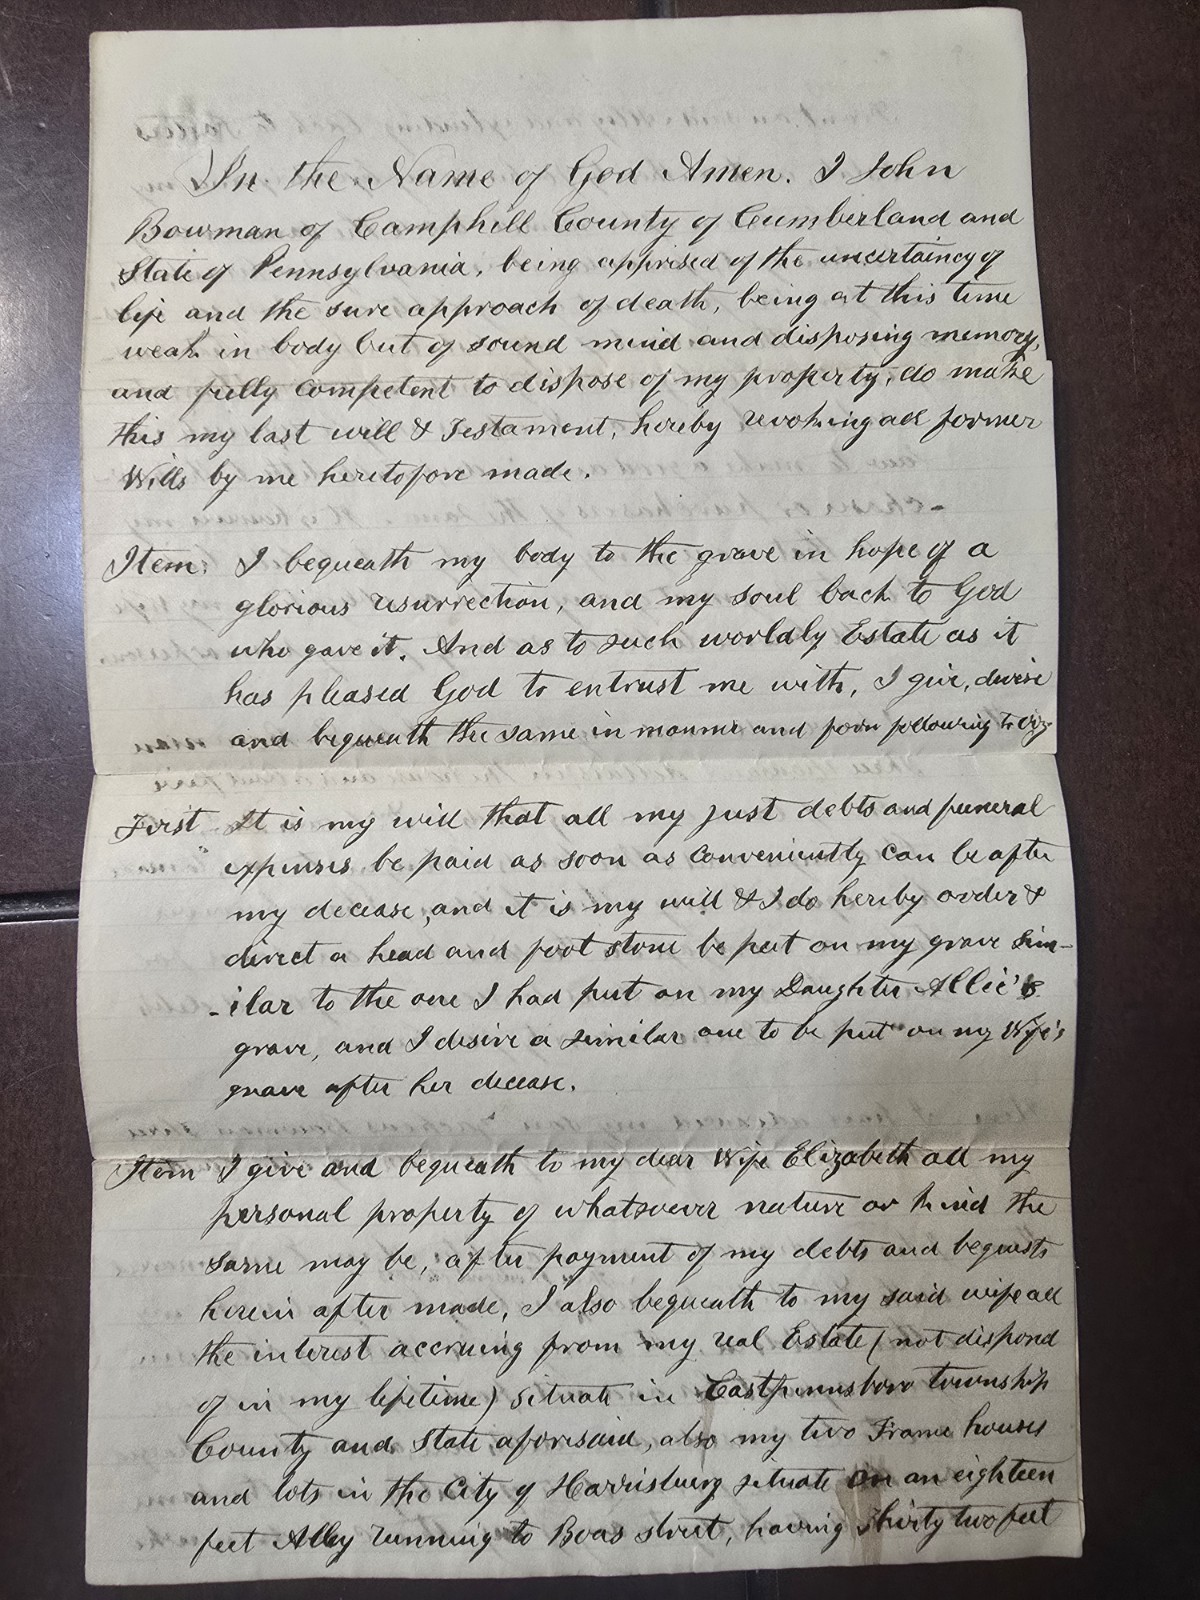 In the Name of God Amen. I John
Bowman of Camphill County of Cumberland and
State of Pennsylvania, being apprised of the uncertaincy of
life and the sure approach of death, being at this time
weak in body but of sound mind and disposing memory,
and fully competent to dispose of my property, do make
this my last will & Testament, hereby revoking all former
Wills by me heretofore made.
Item: I bequeath my body to the grave in hope of a
glorious resurrection, and my soul back to God
who gave it. And as to such worldly Estate as it
has pleased God to entrust me with, I give, devise
and bequeath the same in manner and form following to viz
First It is my will that all my just debts and funeral
expenses be paid as soon as conveniently can be after
my decease, and it is my will & I do hereby order &
direct a head and foot stone be put on my grave Sim-
-ilar to the one I had put on my Daughter Allie's
grave, and I desire a similar one to be put on my Wife's
grave after her decease.
Item I give and bequeath to my dear Wife Elizabeth all my
personal property of whatsoever nature or kind the
same may be, after payment of my debts and bequests
herein after made, I also bequeath to my said wife all
the interest accruing from my real Estate (not disposed
of in my lifetime) situate in Eastpennsboro township
County and State aforesaid, also my two Frame houses
and lots in the City of Harrisburg situate on an eighteen
feet Alley running to Boas street, having thirty two feet